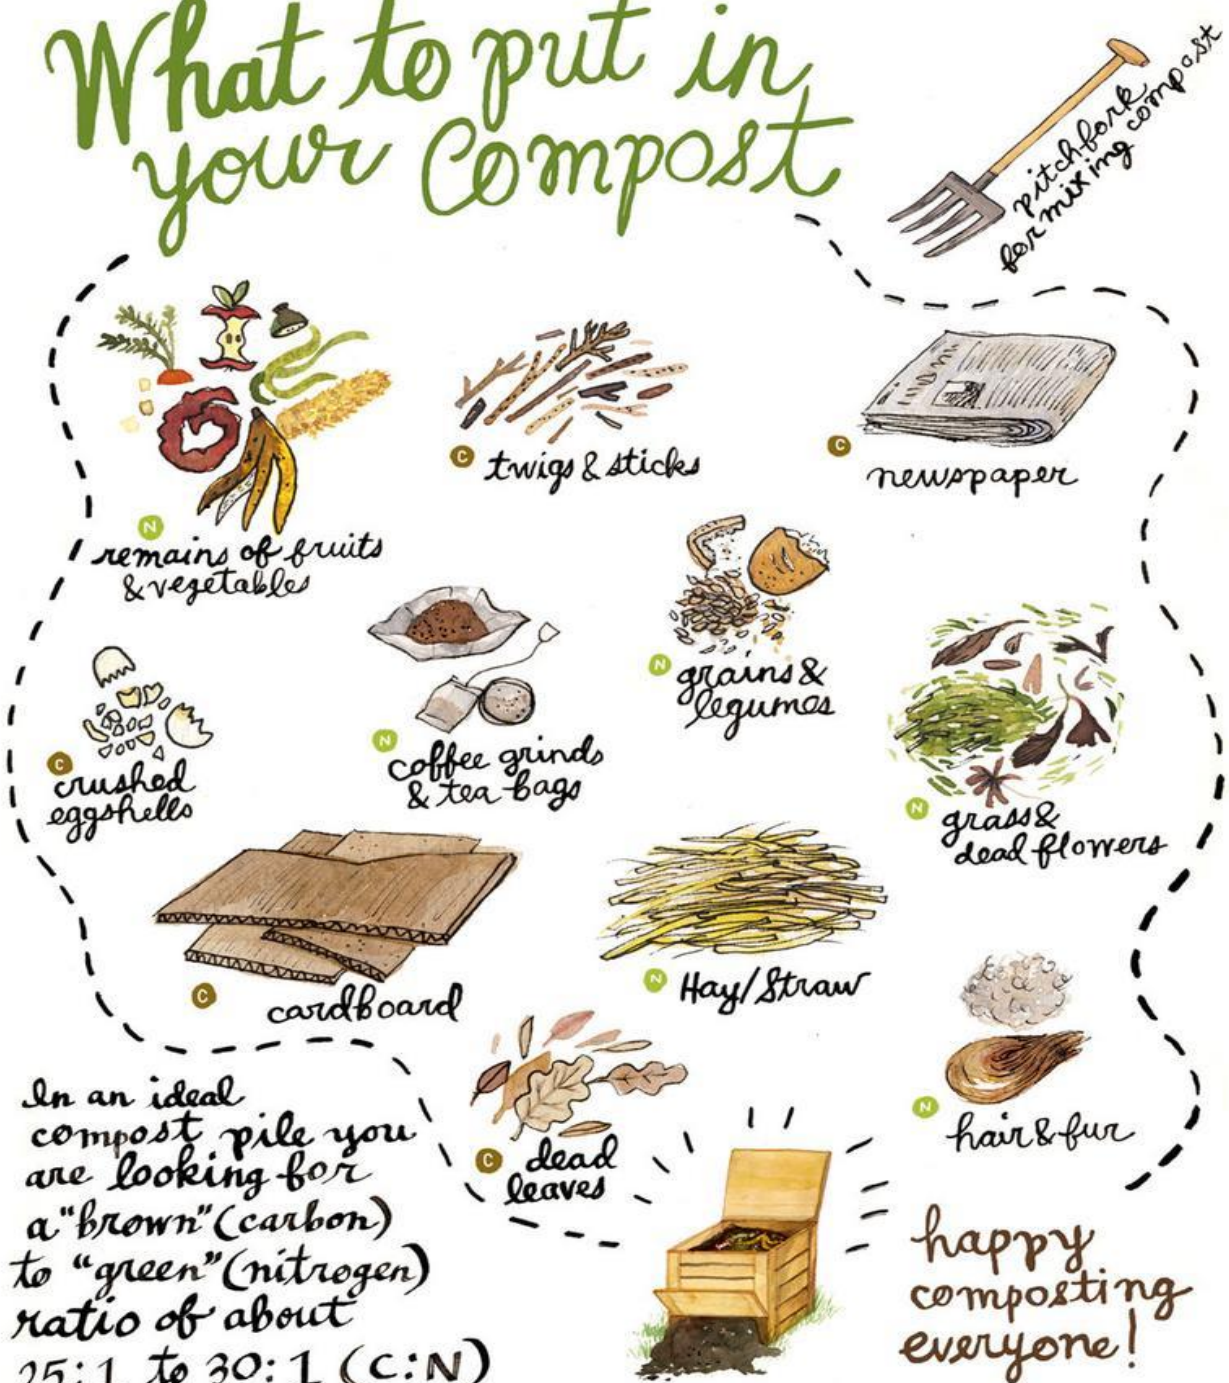 What to put in
your Compost
pitchfork
for mixing compost
N
remains of fruits
& vegetables
C twigs & sticks
C
newspaper
C
crushed
eggshells
N
coffee grinds
& tea bags
N grains &
legumes
N
grass &
dead flowers
C
cardboard
N Hay/Straw
C dead
leaves
N
hair & fur
In an ideal
compost pile you
are looking for
a "brown" (carbon)
to "green" (nitrogen)
ratio of about
25:1 to 30:1 (C:N)
happy
composting
everyone!